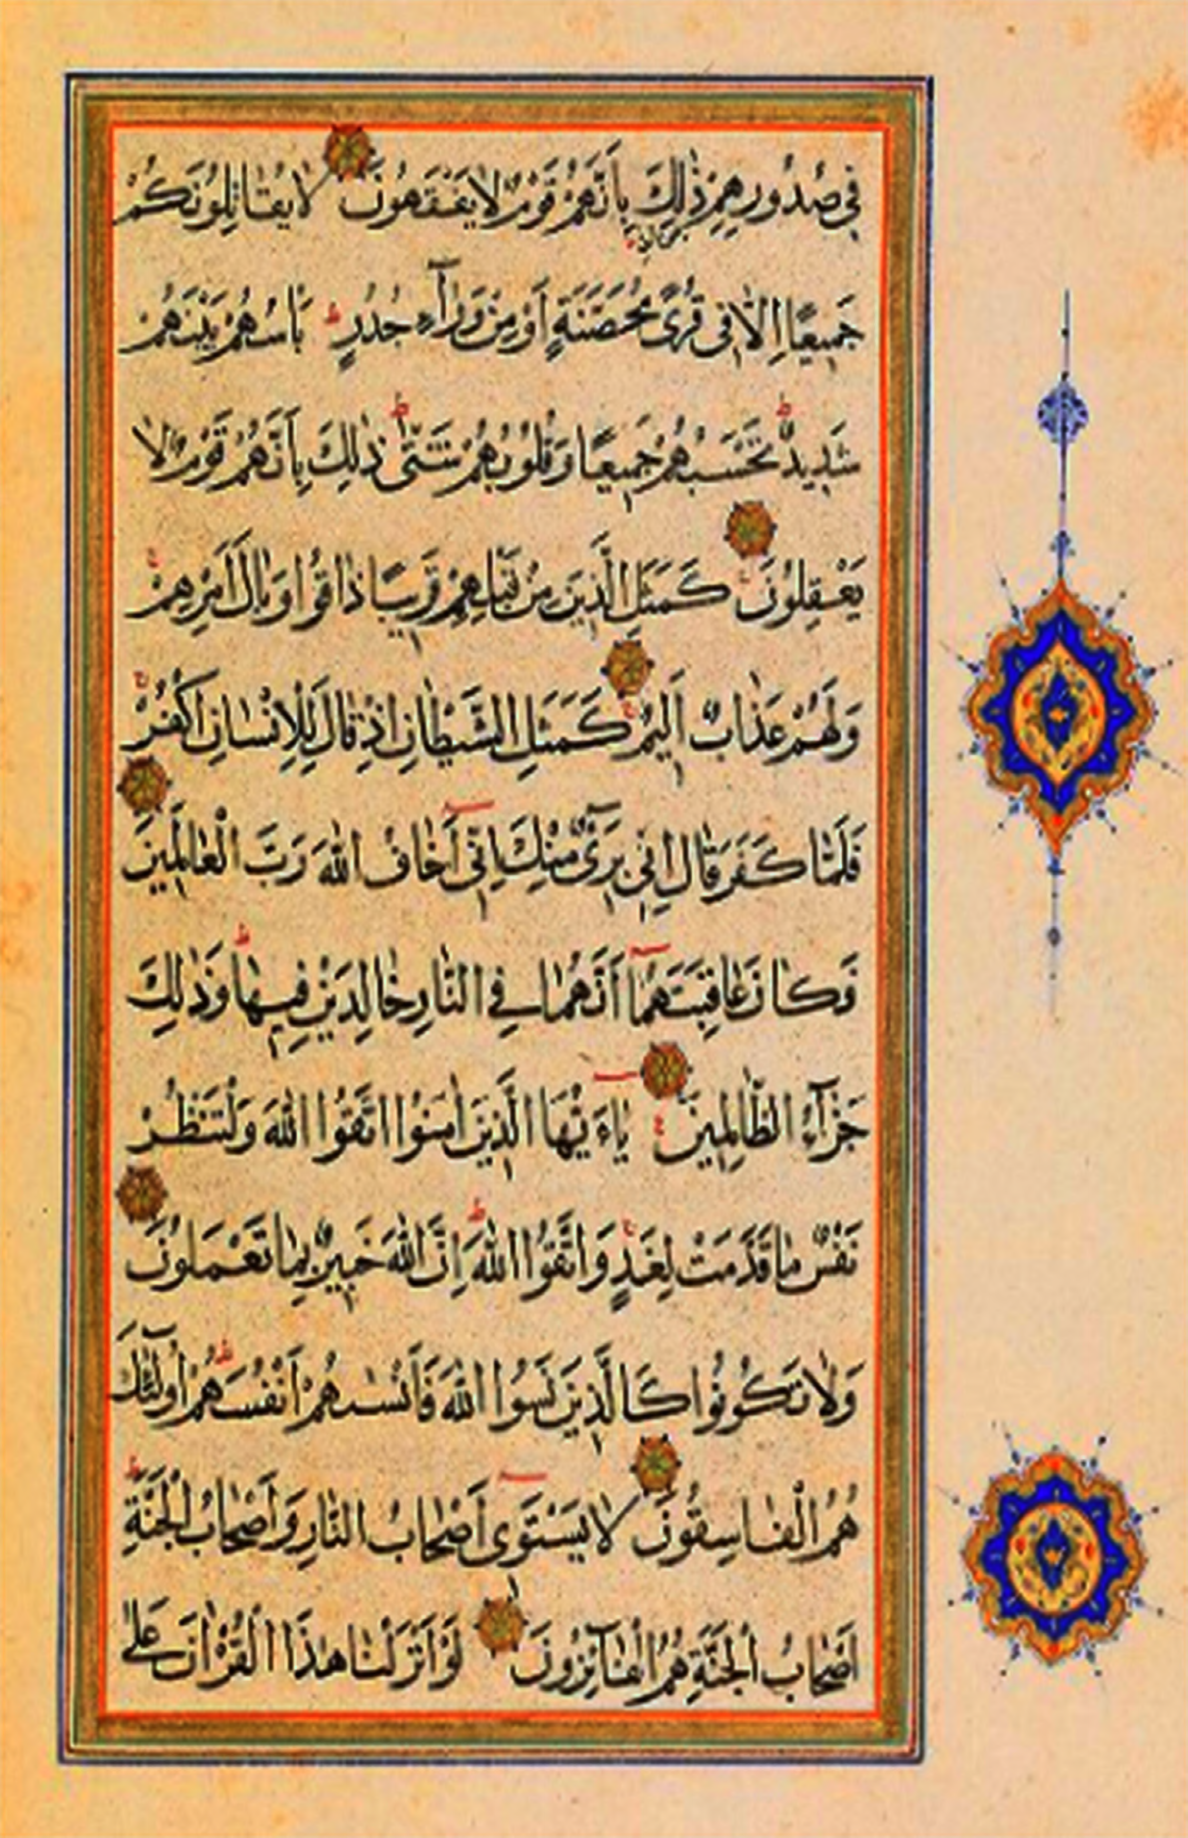 فِي صُدُورِهِمْ ذٰلِكَ بِأَنَّهُمْ قَوْمٌ لَا يَفْقَهُونَ لَا يُقَاتِلُونَكُمْ
جَمِيعًا اِلَّا فِي قُرًى مُحَصَّنَةٍ أَوْ مِنْ وَرَآءِ جُدُرٍ ط بَأْسُهُمْ بَيْنَهُمْ
شَدِيدٌ ط تَحْسَبُهُمْ جَمِيعًا وَقُلُوبُهُمْ شَتّٰى ط ذٰلِكَ بِأَنَّهُمْ قَوْمٌ لَا
يَعْقِلُونَ كَمَثَلِ الَّذِينَ مِنْ قَبْلِهِمْ قَرِيبًا ذَاقُوا وَبَالَ اَمْرِهِمْ ج
وَلَهُمْ عَذَابٌ اَلِيمٌ كَمَثَلِ الشَّيْطَانِ اِذْ قَالَ لِلْاِنْسَانِ اكْفُرْ ج
فَلَمَّا كَفَرَ قَالَ اِنِّي بَرِيٓءٌ مِنْكَ اِنِّيٓ اَخَافُ اللّٰهَ رَبَّ الْعَالَمِينَ
فَكَانَ عَاقِبَتَهُمَآ اَنَّهُمَا فِي النَّارِ خَالِدَيْنِ فِيهَا ط وَذٰلِكَ
جَزَآءُ الظَّالِمِينَ ع يَاءَيُّهَا الَّذِينَ اٰمَنُوا اتَّقُوا اللّٰهَ وَلْتَنْظُرْ
نَفْسٌ مَا قَدَّمَتْ لِغَدٍ ج وَاتَّقُوا اللّٰهَ ط اِنَّ اللّٰهَ خَبِيرٌ بِمَا تَعْمَلُونَ
وَلَا تَكُونُوا كَالَّذِينَ نَسُوا اللّٰهَ فَاَنْسٰىهُمْ اَنْفُسَهُمْ ط اُولٰٓئِكَ
هُمُ الْفَاسِقُونَ لَا يَسْتَوِيٓ اَصْحَابُ النَّارِ وَاَصْحَابُ الْجَنَّةِ ط
اَصْحَابُ الْجَنَّةِ هُمُ الْفَآئِزُونَ لَوْ اَنْزَلْنَا هٰذَا الْقُرْاٰنَ عَلٰى